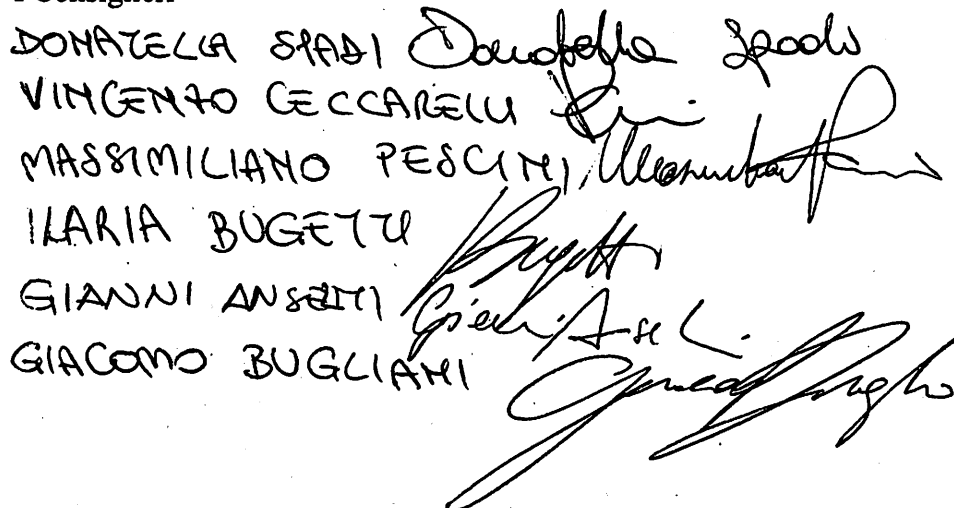 I Consiglieri
DONATELLA SPADI Donatella Spadi
VINCENZO CECCARELLI
MASSIMILIANO PESCINI
ILARIA BUGETTI Bugetti
GIANNI ANSELMI Gianni Anselmi
GIACOMO BUGLIANI